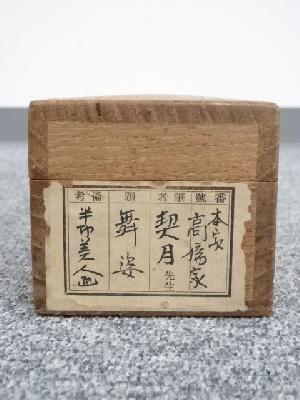 番號
本家
高橋家
筆者
契月先生
題
舞姿
備考
半切美人画